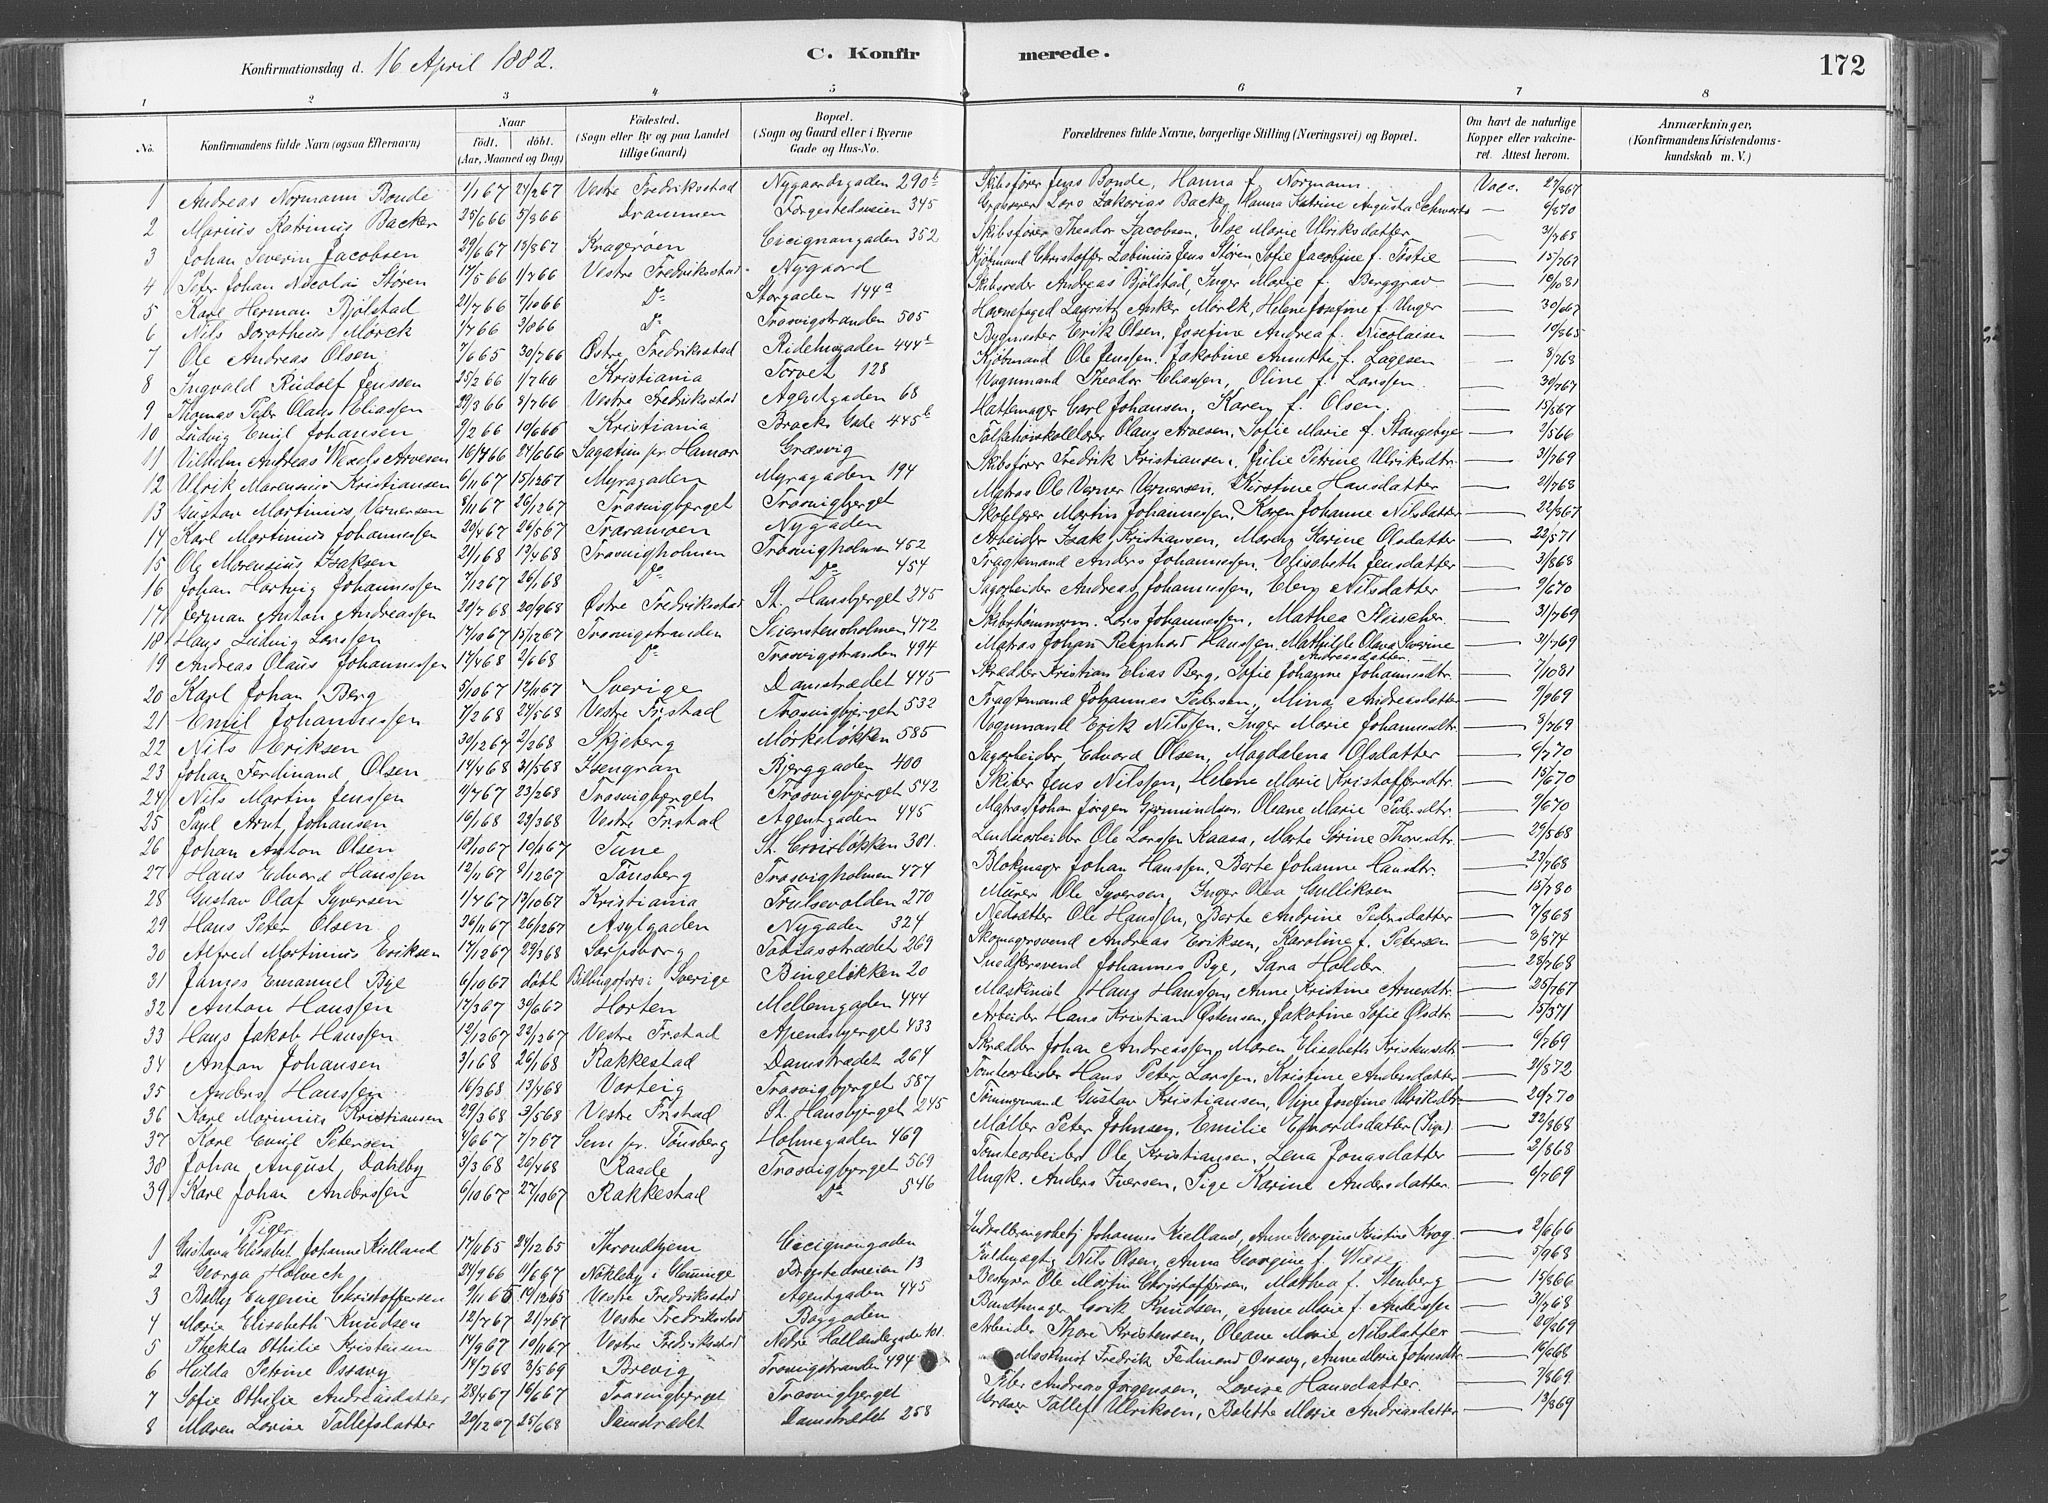 Konfirmationsdag d. 16 April 1882.
C. Konfirmerede.
172
1 2 3 4 5 6 7 8
No.
Konfirmandens fulde Navn (ogsaa Efternavn)
Naar født. døbt. (Aar, Maaned og Dag)
Fødested. (Sogn eller By og paa Landet tillige Gaard)
Bopæl. (Sogn og Gaard eller i Byerne Gade og Hus-No.
Forældrenes fulde Navne, borgerlige Stilling (Næringsvei) og Bopæl.
Om havt de naturlige Kopper eller vakcineret. Attest herom.
Anmærkninger, (Konfirmandens Kristendomskundskab m. V.)
1 Andreas Normann Bonde 1/1 67 24/2 67 Vestre Fredriksstad Nygaardsgaden 290b Skibsfører Jens Bonde, Hanna f. Normann Vacc. 27/8 67
2 Marius Katrinus Backer 25/6 66 5/8 66 Drammen Færgestedsveien 345 Lars Zakarias Backe, Hanna Katrine Augusta — 6/8 70
3 Johan Severin Jacobsen 29/6 67 13/8 67 Kragerøen Cicignongaden 352 Skibsfører Theodor Jacobsen, Else Marie Ulriksdatter — 3/7 68
4 Peter Johan Nicolai Støren 17/5 66 1/7 66 Vestre Fredriksstad Nygaard Kjøbmand Christoffer Støren, Sofie Jacobine f. — 15/7 67
5 Karl Herman Bjølstad 21/7 66 7/10 66 Do Storgaden 144a Skibsreder Andreas Bjølstad, Inger Marie f. Berggrav — 10/10 81
6 Nils Dorotheus Mørck 1/7 66 3/9 66 Do Trosvigstranden 505 Havnefoged Lauritz Anker Mørck, Helene Josefine f. Unger — 30/6 67
7 Ole Andreas Olsen 7/6 65 30/7 66 Østre Fredriksstad Ridehusgaden 444b Bygmester Erik Olsen, Josefine Andrea f. Nicolaisen — 19/8 65
8 Ingvald Rudolf Jenssen 25/2 66 1/7 66 Kristiania Torvet 128 Kjøbmand Ole Jenssen, Jakobine Annette f. Lagesen — 8/7 68
9 Thomas Peter Olaus Eliassen 29/3 66 8/7 66 Vestre Fredriksstad Agentgaden 68 Vognmand Theodor Eliassen, Oline f. Larssen — 30/7 67
10 Ludvig Emil Johansen 9/2 66 10/6 66 Kristiania Brochs Gade 445b Hattemager Carl Johansen, Karen f. Olsen — 15/8 67
11 Vilhelm Andreas Wexels Arvesen 16/4 66 24/6 66 Sagatun pr Hamar Græsvig Olaus Arvesen, Sofie Marie f. Stangebye — 2/5 66
12 Ulrik Marensius Kristiansen 9/11 67 15/12 67 Myragaden Myragaden 194 Skibsfører Fredrik Kristiansen, Julie Petrine Ulriksdtr. — 31/7 69
13 Gustav Martinius Vernersen 8/11 67 26/12 67 Trosvigberget Trosvigberget Matros Ole Verner Vernersen, Kirstine Hansdatter — 21/7 68
14 Karl Martinius Johannessen 20/4 67 26/5 67 Traramoen Nygaden Skolelærer Martin Johannessen, Karen Johanne Nilsdatter — 22/3 67
15 Ole Marensius Isaksen 21/1 68 13/4 68 Trosvigholmen Trosvigholmen 452 Arbeider Isak Kristiansen, Maren Karine Olsdatter — 22/5 71
16 Johan Hartvig Johannessen 7/12 67 26/1 68 Do Do 454 Fragtemand Anders Johannessen, Elisabeth Jensdatter — 3/8 68
17 Herman Anton Andreassen 20/7 68 20/9 68 Østre Fredriksstad St. Hansbjerget 245 Sagarbeider Andreas Johannessen, Eleng Nilsdatter — 9/6 70
18 Hans Ludvig Larssen 17/10 67 15/12 67 Trosvigstranden Seierstensholmen 472 Skibstømmerm. Lars Johannessen, Mathea Fleischer — 31/7 69
19 Andreas Olaus Johannessen 17/4 68 2/6 68 Do Trosvigstranden 494 Matros Johan Reinhard Hanssen, Mathilde Olava Severine Andreasdatter — 3/7 69
20 Karl Johan Berg 5/10 67 17/11 67 Sverige Damstrædet 445 Skrædder Kristian Elias Berg, Sofie Johanne Johannesdtr. — 7/10 81
21 Emil Johannessen 7/2 68 24/5 68 Vestre Fr.stad Trosvigbjerget 532 Fragtemand Johannes Pedersen, Mina Andreasdatter — 9/9 69
22 Nils Eriksen 30/12 67 2/2 68 Skjeberg Mørkeløkken 585 Vognmand Erik Nilssen, Inger Marie Johannesdtr. — 3/7 69
23 Johan Ferdinand Olsen 14/4 68 31/5 68 Isengran Bjerggaden 400 Sagarbeider Edvard Olsen, Magdalena Olsdatter — 6/7 70
24 Nils Martin Jenssen 11/7 67 23/2 68 Trosvigberget Trosvigbjerget 542 Skiber Jens Nilssen, Helene Marie Kristoffersdtr. — 15/6 70
25 Paul Arnt Johansen 16/1 68 29/3 68 Vestre Fr.stad Agentgaden 445 Matros Johan Jørgen Gjermundsen, Oleane Marie Pedersdtr. — 9/6 70
26 Johan Anton Olsen 10/10 67 10/11 67 Tune St. Croixløkken 301 Lendsearbeider Ole Larssen Raasa, Marte Sørine Thoresdtr. — 29/5 68
27 Hans Edvard Hanssen 12/11 67 8/12 67 Tønsberg Trosvigholmen 474 Blokmager Johan Hanssen, Berte Johanne Hansdtr. — 23/7 68
28 Gustav Olaf Syversen 1/4 67 13/10 67 Kristiania Trulsevolden 270 Murer Ole Syversen, Inger Olea Gulliksen — 15/7 80
29 Hans Peter Olsen 30/11 67 26/12 67 Asylgaden Nygaden 324 Ole Hanssen, Berte Andrine Pedersdatter — 7/8 68
30 Alfred Martinius Eriksen 17/12 67 29/3 68 Sarpsborg Tobiasstrædet 269 Skomagersvend Andreas Eriksen, Karoline f. Petersen — 8/8 74
31 James Emanuel Bye 6/10 67 døbt Billingsfors i Sverige Bingeløkken 20 Snedkersvend Johannes Bye, Sara Holder — 28/7 68
32 Anton Hanssen 17/3 67 30/6 67 Horten Mellemgaden 444 Maskinist Hans Hanssen, Anne Kristine Arnesdtr. — 25/7 67
33 Hans Jakob Hanssen 12/12 67 22/12 67 Vestre Fr.stad Apenæsbjerget 433 Arbeider Hans Kristian Østensen, Jakobine Sofie Olsdtr. — 15/3 71
34 Anton Johansen 3/1 68 26/1 68 Rakkestad Damstrædet 264 Skrædder Johan Andreassen, Maren Elisabeth Kristensdtr. — 9/7 69
35 Anders Hanssen 16/3 68 13/4 68 Varteig Trosvigbjerget 587 Tomtearbeider Hans Peter Larssen, Kristine Andersdatter — 21/8 72
36 Karl Marinius Kristiansen 29/3 68 3/5 68 Vestre Fr.stad St. Hansbjerget 245 Tømmermand Gustav Kristiansen, Oline Josefine Ulriksdtr. — 20/7 70
37 Karl Emil Petersen 9/6 67 7/7 67 Sem pr. Tønsberg Holmegaden 469 Møller Peter Johnsen, Emilie Edvardsdatter (Pige) — 22/8 68
38 Johan August Dahlby 3/3 68 26/4 68 Raade Trosvigbjerget 569 Tomtearbeider Ole Kristiansen, Lena Jonasdatter — 2/8 68
39 Karl Johan Anderssen 6/10 67 27/10 67 Rakkestad Do 546 Ungk. Anders Iversen, Pige Karine Andersdatter — 6/7 69
Piger
1 Gustava Elisabet Johanne Kielland 17/11 65 24/12 65 Throndhjem Cicignongaden Johannes Kielland, Anne Georgine Kristine Krog — 2/6 66
2 Georga Holvech 24/9 66 11/6 67 Nökleby i Glemminge Færgestedsveien 13 Fuldmægtig Nils Olsen, Anna Georgine f. Wiese — 5/9 68
3 Bolly Eugenie Christoffersen 9/11 65 19/12 65 Vestre Fredriksstad Agentgaden 445 Bestyrer Ole Martin Christoffersen, Mathea f. Stenberg — 15/8 66
4 Marie Elisabeth Knudsen 12/4 67 21/4 67 Vestre Fredriksstad Baggaden Bundtmager Knudsen, Anne Marie f. Anderssen — 31/7 68
5 Thekla Othilie Kristensen 14/9 67 10/11 67 Vestre Fredriksstad Nedre Hollendergade 101. Arbeider Thore Kristensen, Oleane Marie Nilsdatter — 20/2 69
6 Hilda Petrine Ossavy 14/7 68 3/5 69 Brevig Trosvigstranden 494 Maskinist Fredrik Ferdinand Ossavy, Anne Marie Johnsdtr. — 19/6 68
7 Sofie Othilie Andreasdatter 28/4 67 16/6 67 Trosvigberget Trosvigbjerget Andreas Jørgensen, Lovise Hansdatter — 7/8 69
8 Maren Lovise Tollefsdatter 20/12 67 25/6 68 Damstrædet Damstrædet 258 Tollef Ulriksen, Bolette Marie Andreasdatter — 13/8 69